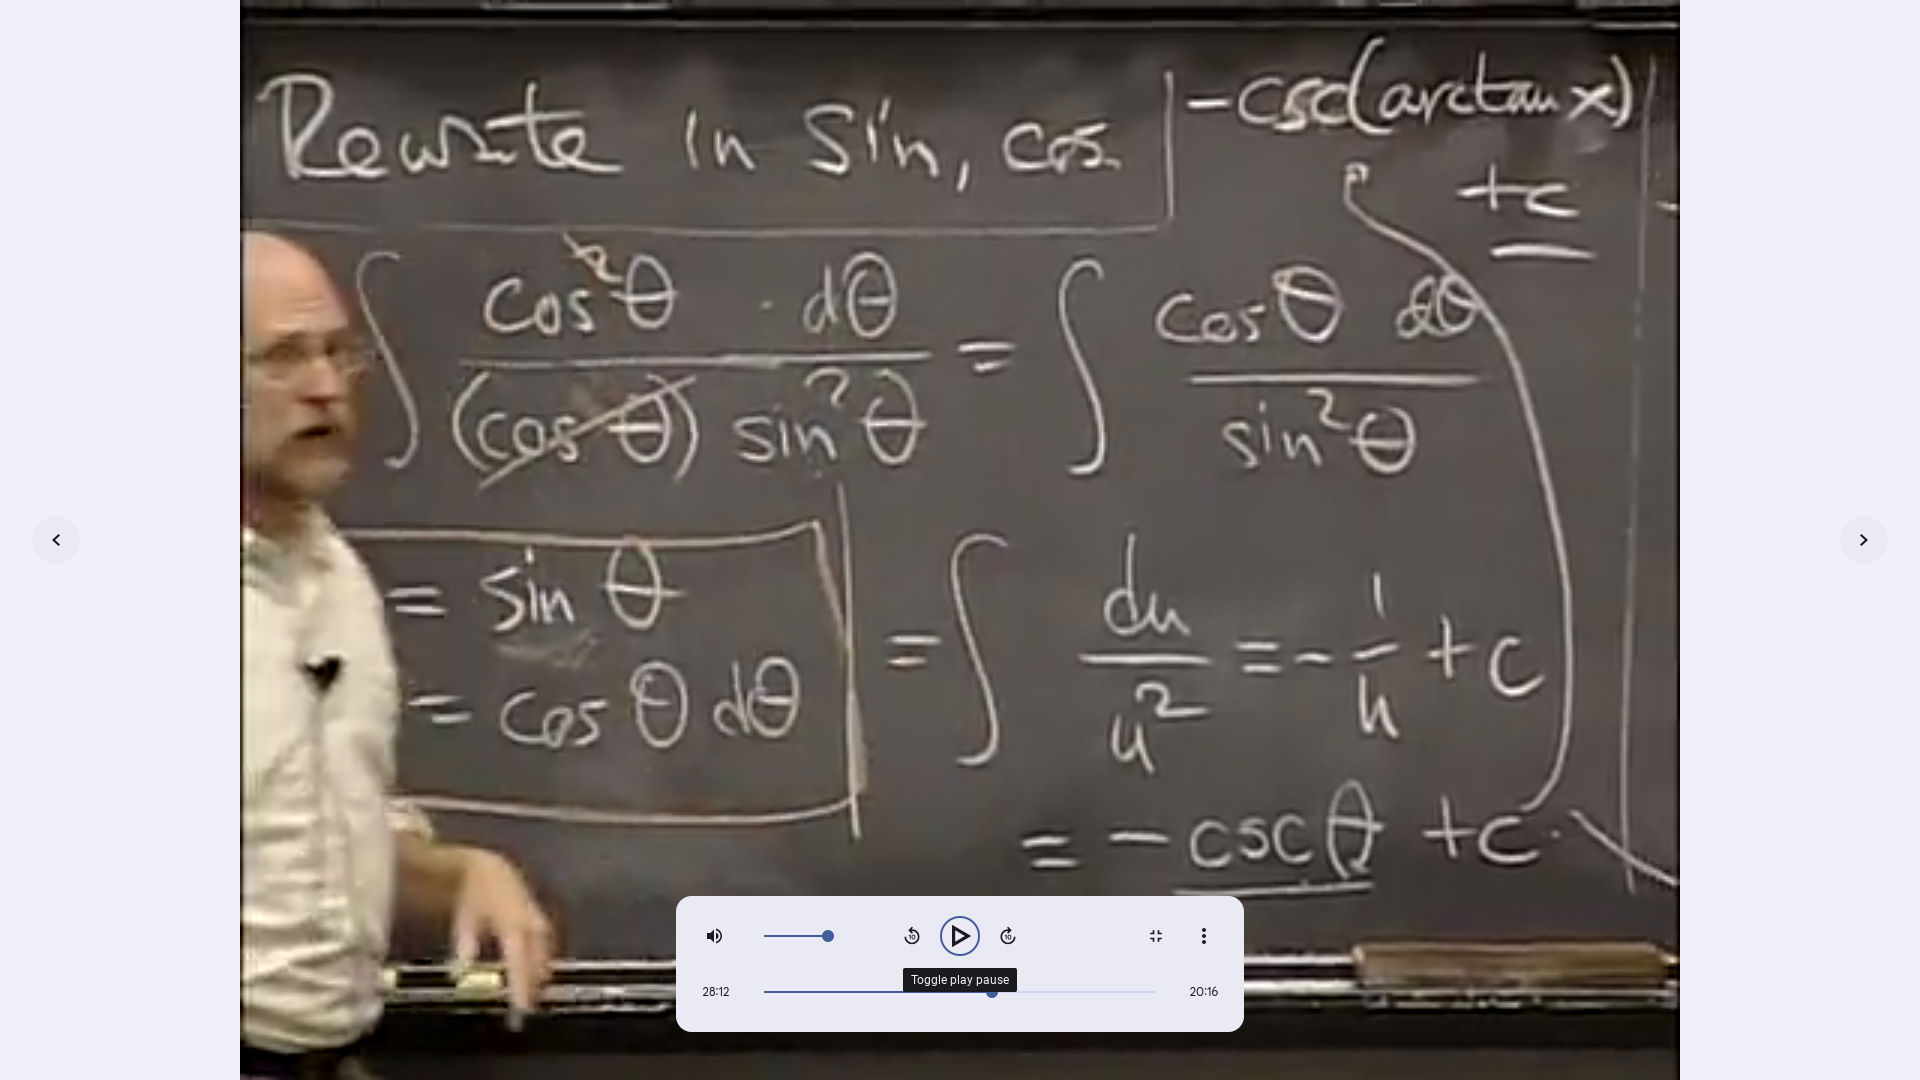 Rewrite in sin, cos.
-csc(arctan x)
+c
∫ cos²θ · dθ / (cos θ) sin²θ = ∫ cos θ dθ / sin²θ
= sin θ
= cos θ dθ
= ∫ du / u² = - 1/u + c
= -csc θ + c.
10
10
Toggle play pause
28:12
20:16